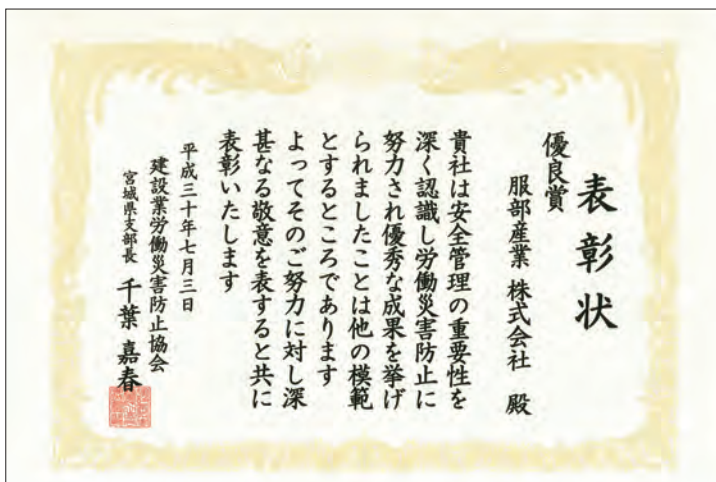 表彰状
優良賞
服部産業 株式会社 殿
貴社は安全管理の重要性を
深く認識し労働災害防止に
努力され優秀な成果を挙げ
られましたことは他の模範
とするところであります
よってそのご努力に対し深
甚なる敬意を表すると共に
表彰いたします
平成三十年七月三日
建設業労働災害防止協会
宮城県支部長 千葉嘉春